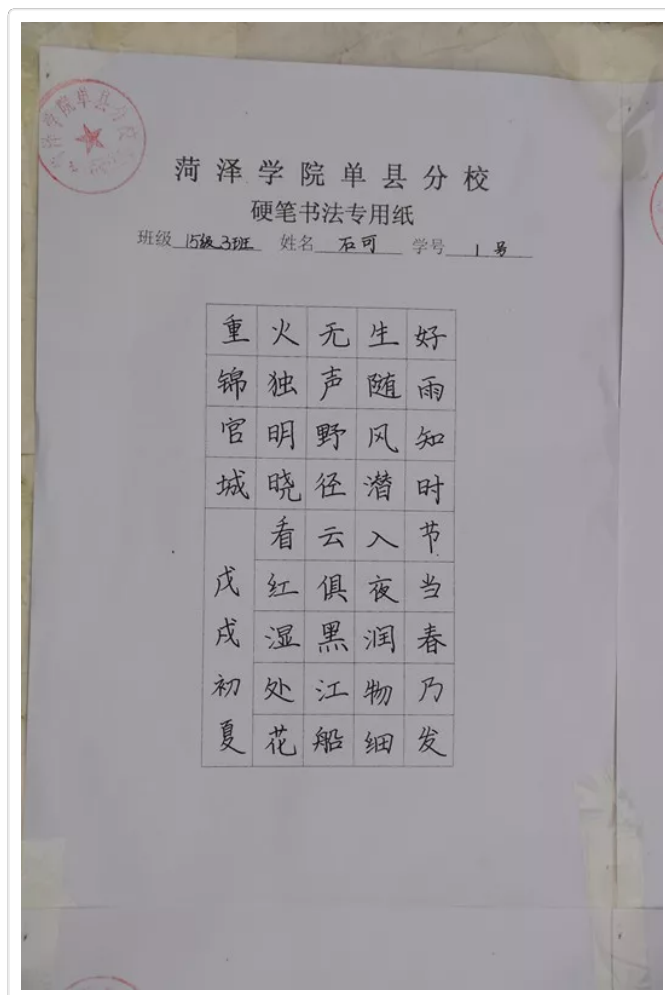 菏泽学院单县分校
菏泽学院单县分校
硬笔书法专用纸
班级 15级3班 姓名 石可 学号 1号
好雨知时节当春乃发
生随风潜入夜润物细
无声野径云俱黑江船
火独明晓看红湿处花
重锦官城
戊戌初夏